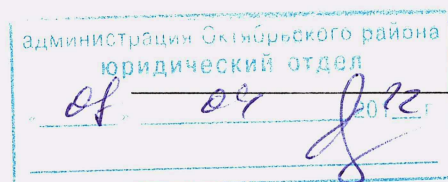 администрация Октябрьского района
юридический отдел
" 04 2012 г